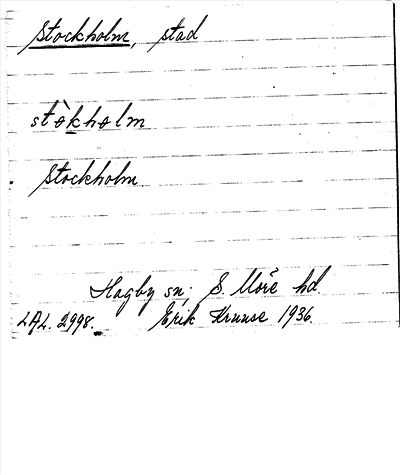 Stockholm, stad
stòkholm
Stockholm
Hagby sn; S. Möre hd.
LAL. 2998. Erik Kruuse 1936.